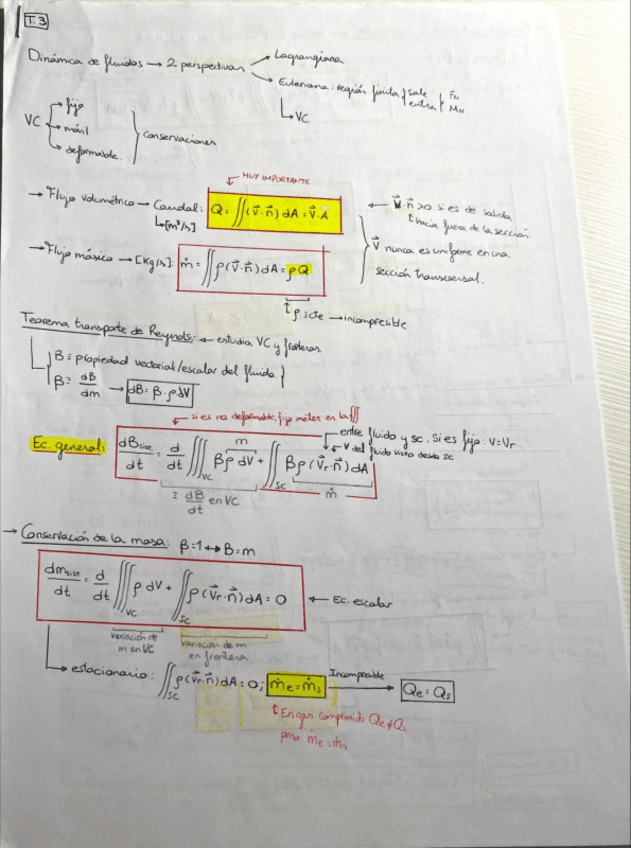 T.3
Dinámica de fluidos → 2 perspectivas → Lagrangiana
→ Euleriana: región finita { sale entra } Fu Mu
↳ VC
VC → fijo
→ móvil
→ deformable.
} conservaciones
↓ MUY IMPORTANTE
→ Flujo volumétrico → Caudal: Q = ∬(V⃗·n⃗) dA = V⃗·A⃗
↳ [m³/s]
← V⃗·n⃗ > 0 si es de salida
↑ hacia fuera de la sección
V⃗ nunca es uniforme en una
sección transversal.
→ Flujo másico → [Kg/s]: ṁ = ∬ρ(V⃗·n⃗) dA = ρQ
↑ ρ cte → incompresible
Teorema transporte de Reynolds: ← estudia VC y fronteras
B = propiedad vectorial/escalar del fluido.
β = dB/dm → dB = β·ρ dV
↙ si es no deformable, fijo meter en la ∭
entre fluido y sc. Si es fijo: V = Vr
V del fluido visto desde sc
Ec. general: dBsist/dt = d/dt ∭VC βρ dV + ∬SC βρ(V⃗r·n⃗) dA
m
dB/dt en VC
ṁ
→ Conservación de la masa: β=1 ↔ B=m
dmsist/dt = d/dt ∭VC ρ dV + ∬SC ρ(V⃗r·n⃗) dA = 0 ← Ec. escalar
variación de
m en VC
variación de m
en frontera
↳ estacionario: ∬SC ρ(V⃗r·n⃗) dA = 0; ṁe = ṁs Incompresible → Qe = Qs
↑ En gas comprimido Qe ≠ Qs
pero ṁe = ṁs